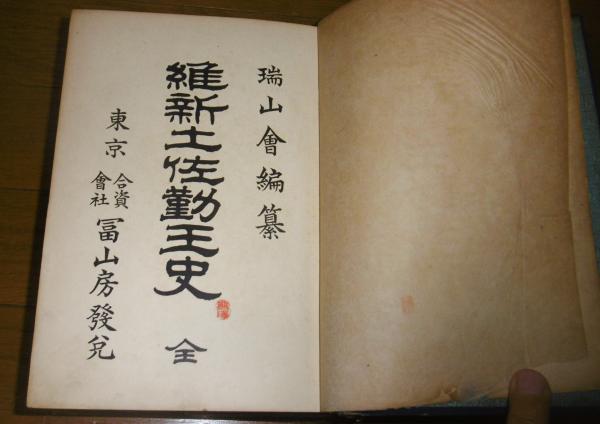 瑞山會編纂
維新土佐勤王史 全
東京 合資會社 冨山房發兌